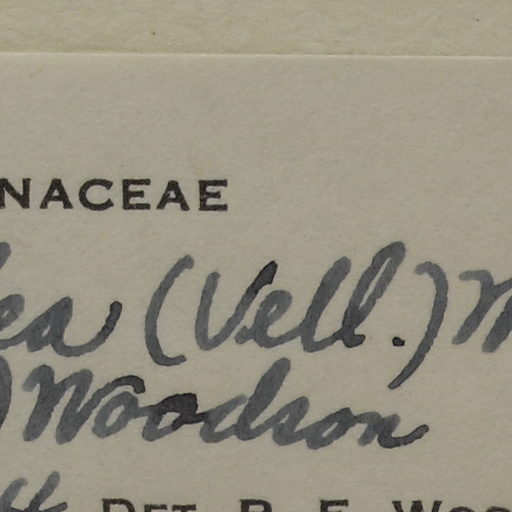 NACEAE
ea (Vell.) M
) Woodson
DET. R. E. Woo